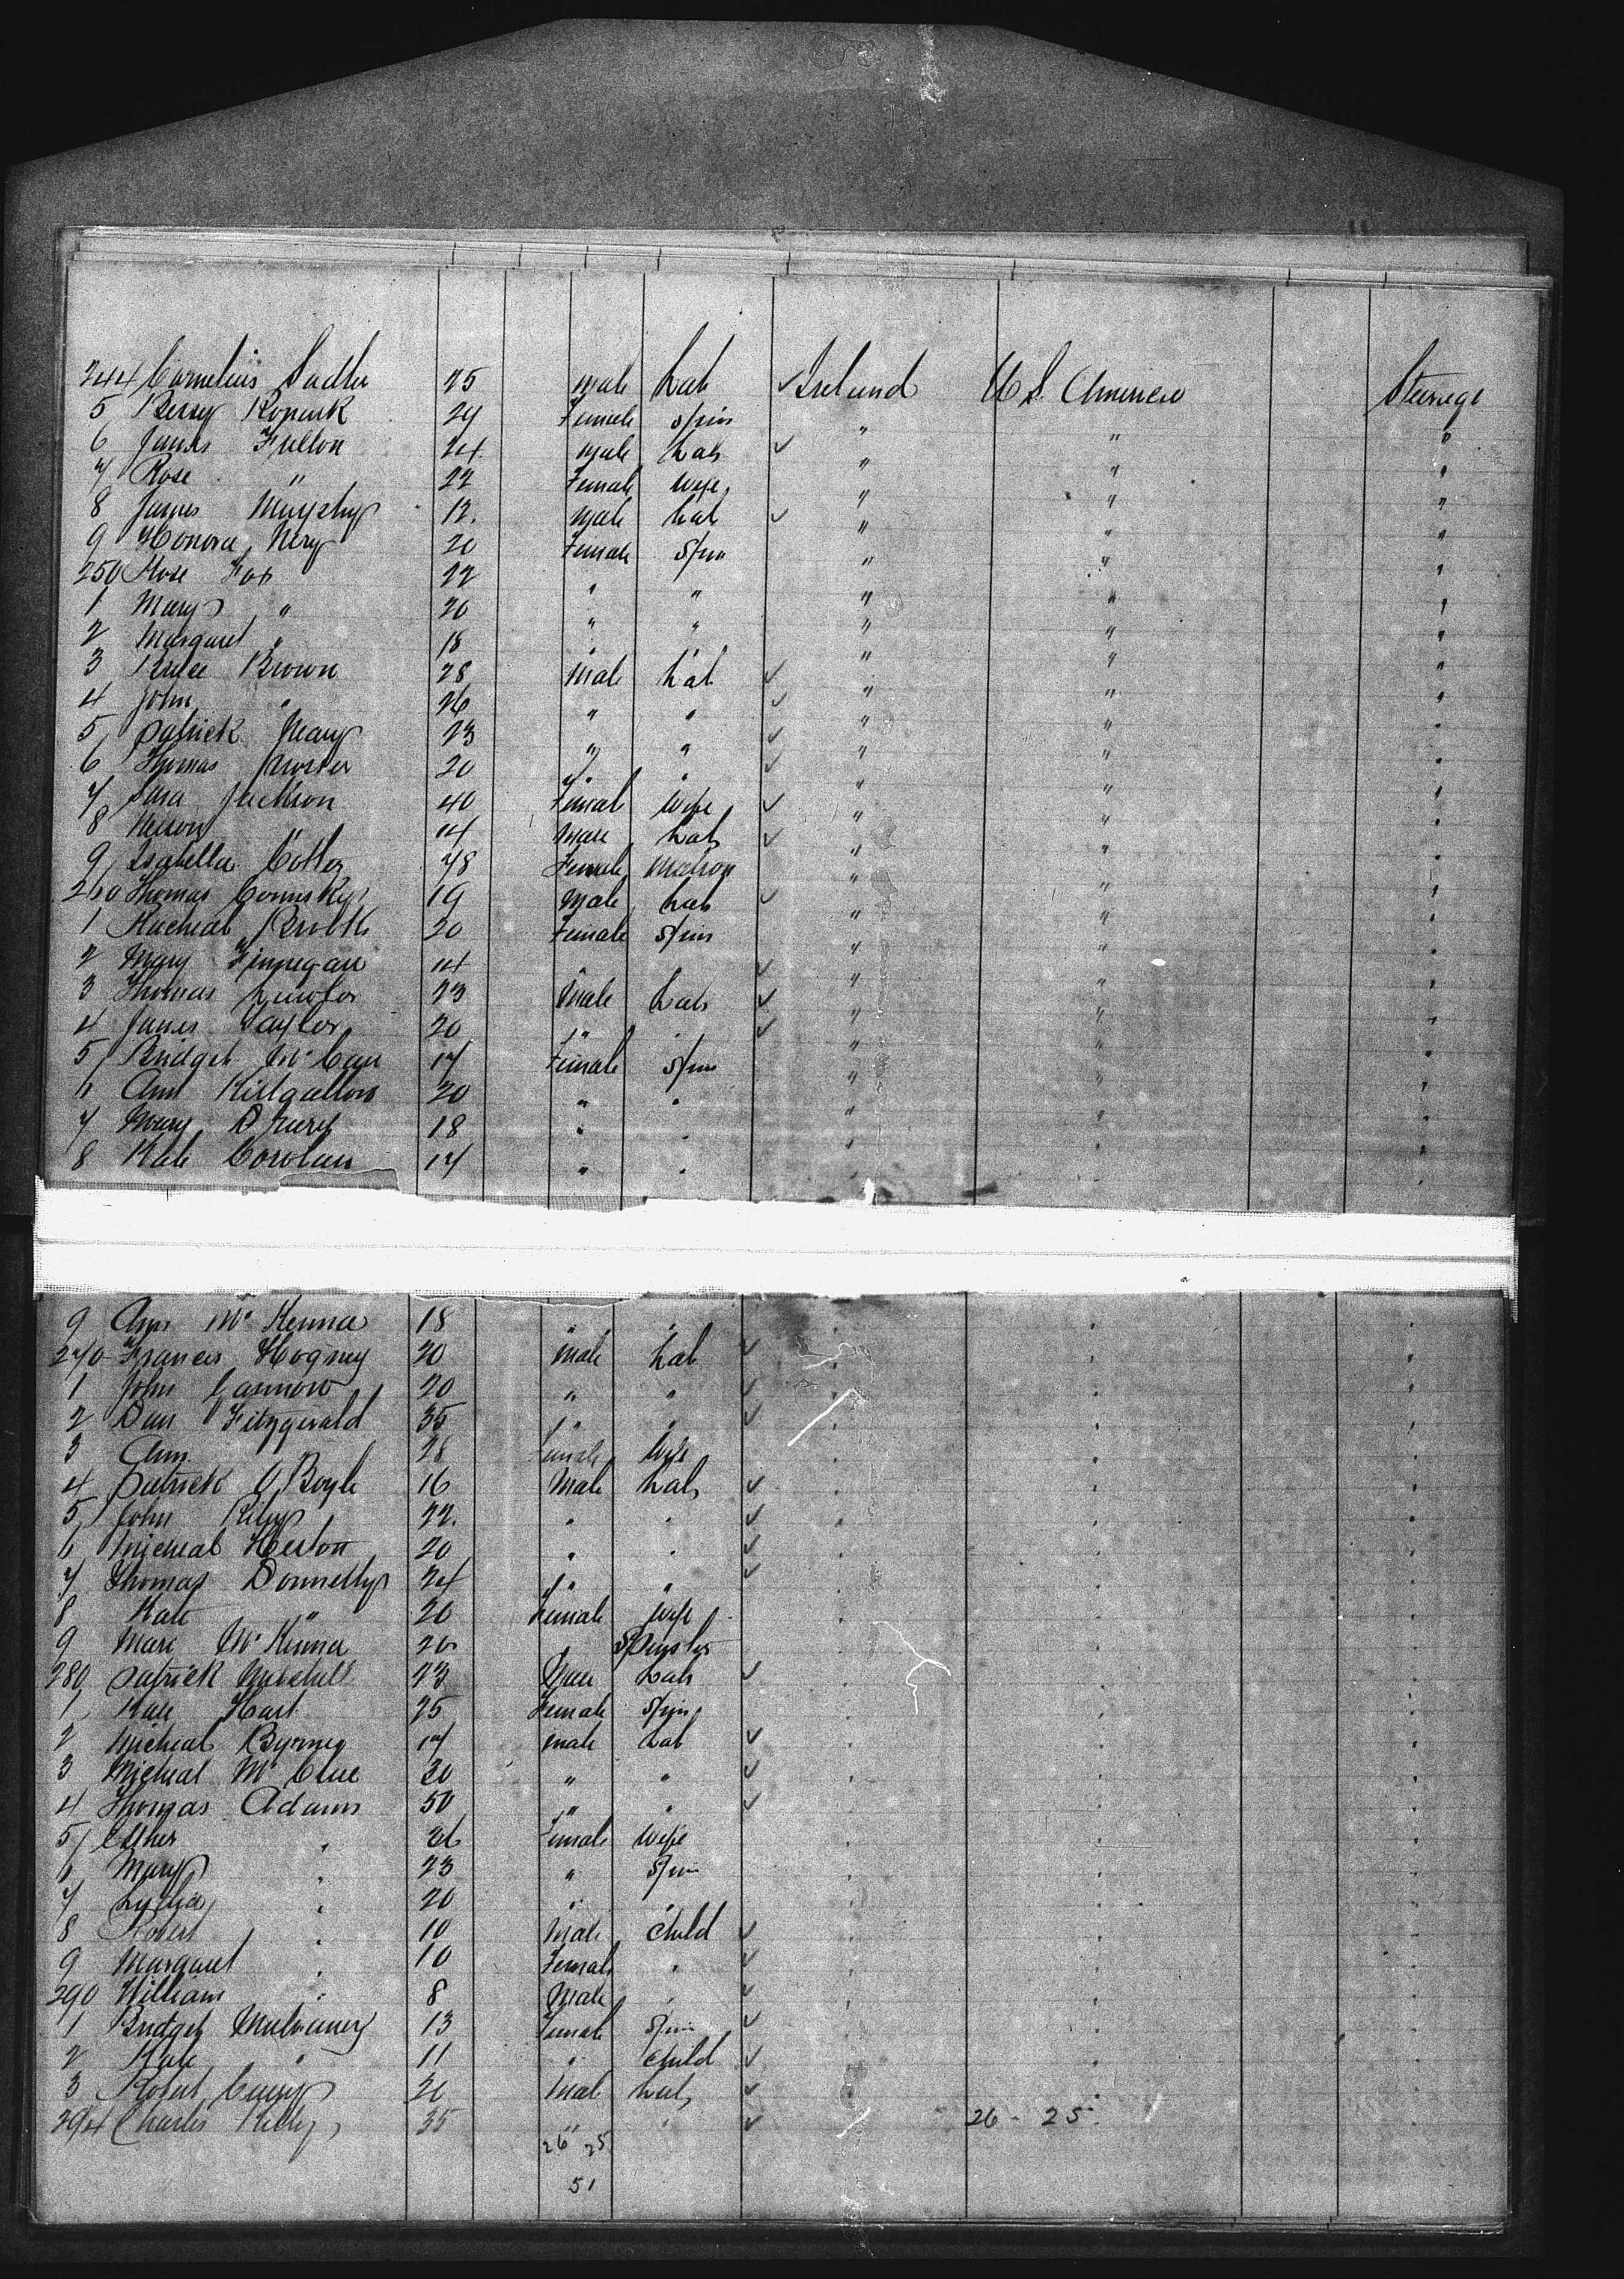 244 Cornelius Sadler 25 male Lab ✓ Ireland U S. America Steerage
5 Bessy 24 Female spin " " "
6 James Fullon 24 male Lab ✓ " " "
7 Rose " 22 Female wife " " "
8 James Murphy 12. male Lab ✓ " " "
9 Honora Nery 20 Female Spin " " "
250 Rose Fox 22 " " " " "
1 Mary " 20 " " " " "
2 Margaret " 18 " " " " "
3 Brown 28 Male Lab ✓ " " "
4 John " 26 " " ✓ " " "
5 Patrick Neary 23 " " ✓ " " "
6 Thomas 20 " " ✓ " " "
7 Sara Jackson 40 Female wife ✓ " " "
8 Nelson " 14 Male Lab ✓ " " "
9 Isabella 48 Female Matron " " "
260 Thomas 19 Male Lab ✓ " " "
1 Racheal 20 Female Spin " " "
2 Mary Finnegan 14 " " ✓ " " "
3 Thomas Lawlor 23 Male Lab ✓ " " "
4 James Taylor 20 " " ✓ " " "
5 Bridget McCan 17 Female Spin " " "
6 Ann Killgallon 20 " " " " "
7 Mary 18 " " " " "
8 Kate Corolan 17 " " " " "
9 Ann McKenna 18 " " " " "
270 Francis Hogney 20 male Lab ✓ " " "
1 John Gannon 20 " " ✓ " " "
2 Dan Fitzgerald 35 " " ✓ " " "
3 Ann " 28 Female Wife " " "
4 Patrick O Boyle 16 Male Lab ✓ " " "
5 John Rily 22. " " ✓ " " "
6 Micheal Heston 20 " " ✓ " " "
7 Thomas Donnelly 24 " " ✓ " " "
8 Kate " 20 Female wife " " "
9 Mary McKenna 20 Spinster " " "
280 Patrick Mitchell 23 Male Lab ✓ " " "
1 Kate Hart 25 Female Spin " " "
2 Micheal Byrney 17 male Lab ✓ " " "
3 Micheal McClue 30 " " ✓ " " "
4 Thomas Adams 50 " " ✓ " " "
5 Esther " 36 Female Wife " " "
6 Mary " 23 " Spin " " "
7 Lydia " 20 " " " " "
8 Robert " 10 Male Child ✓ " " "
9 Margaret " 10 Female " ✓ " " "
290 William " 8 Male " ✓ " " "
1 Bridget Mulvaney 13 Female Spin ✓ " " "
2 Kate " 11 " Child ✓ " " "
3 Robert 20 Male Lab ✓ " " "
294 Charles Kelly 35 " " ✓ 26 - 25
26 25
51